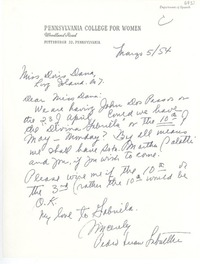 PENNSYLVANIA COLLEGE FOR WOMEN
Woodland Road
PITTSBURGH 32, PENNSYLVANIA
C
Marzo 5/54
Miss Doris Dana,
Long Island. N.Y.
Dear Miss Dana:
We are having John Dos Passos on
the 23 of April. Could we have
the Divina Gabriella on the 10th of
May - Monday? By all means
we shall have Sra. Martha
and you, if you wish to come.
Please wire me if the 10th or
the 3rd (rather the 10th would be
O.K.
My love to Gabriela.
Sincerely
Pedro Juan Labarthe